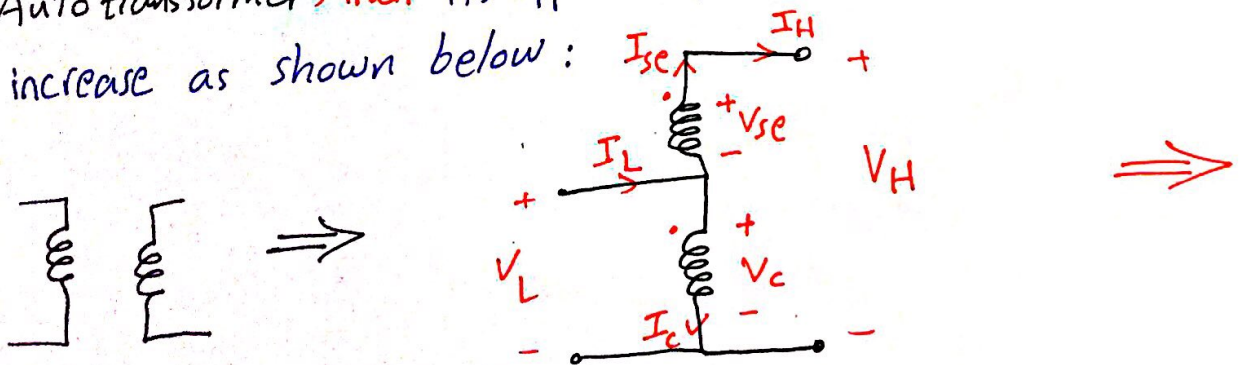 Autotransformer, then
increase as shown below :
I_H
I_se
+
+
V_se
-
I_L
V_H
+
+
V_L
V_c
-
I_c
-
-